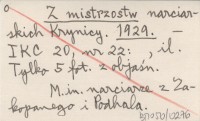 Z mistrzostw narciar-
skich Krynicy. 1929. -
IKC 20, nr 22: , il.
Tylko 5 fot. z objaśn.
M.in. narciarze z Za-
kopanego i Podhala.